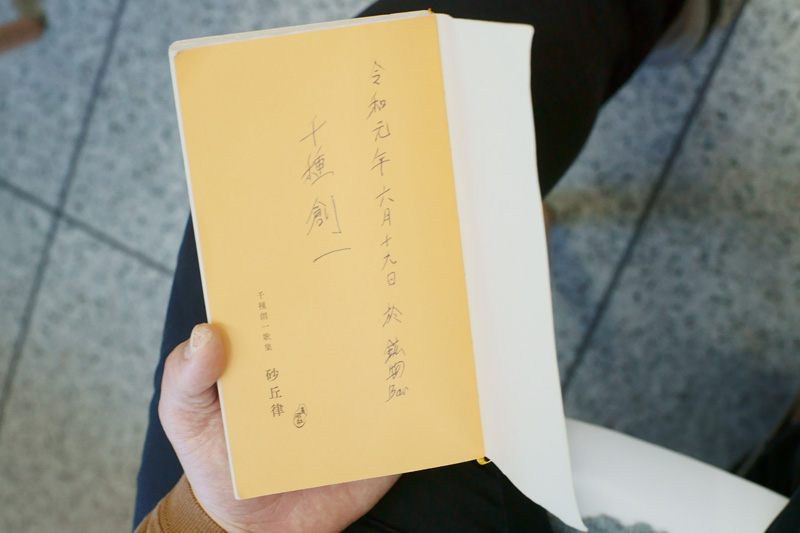 令和元年 六月十九日 於 鉱物Bar
千種創一
千種創一歌集
砂丘律